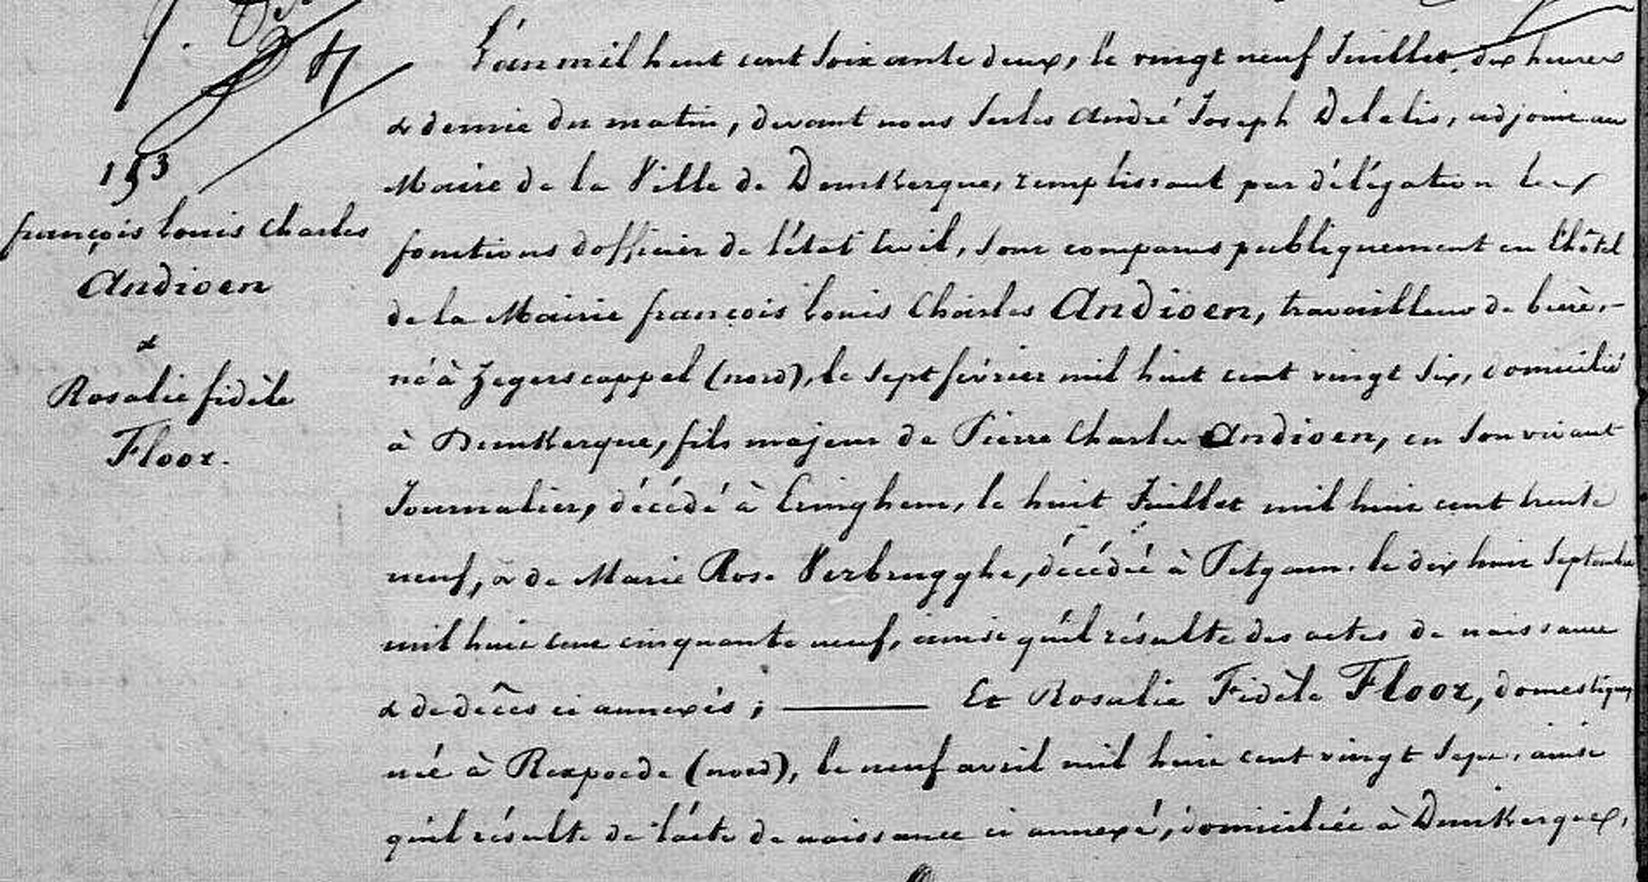 153
françois louis Charles
Andioen
&
Rosalie fidèle
Floor.
L'an mil huit cent soixante deux, le vingt neuf Juillet, dix heures
& demie du matin, devant nous Jules André Joseph Delelis, adjoint au
Maire de la Ville de Dunkerque, remplissant par délégation les
fonctions d'officier de l'état civil, sont comparus publiquement en l'hôtel
de la Mairie françois louis Charles Andioen, travailleur de bière,
né à Zegerscappel (nord), le sept février mil huit cent vingt six, domicilié
à Dunkerque, fils majeur de Pierre Charles Andioen, en son vivant
Journalier, décédé à Eringhem, le huit Juillet mil huit cent trente
neuf, & de Marie Rose Verbrugghe, décédée à Pitgam le dix huit Septembre
mil huit cent cinquante neuf, ainsi qu'il résulte des actes de naissance
& de décès ci annexés ; Et Rosalie Fidèle Floor, domestique,
née à Rexpoede (nord), le neuf avril mil huit cent vingt sept, ainsi
qu'il résulte de l'acte de naissance ci annexé, domiciliée à Dunkerque,